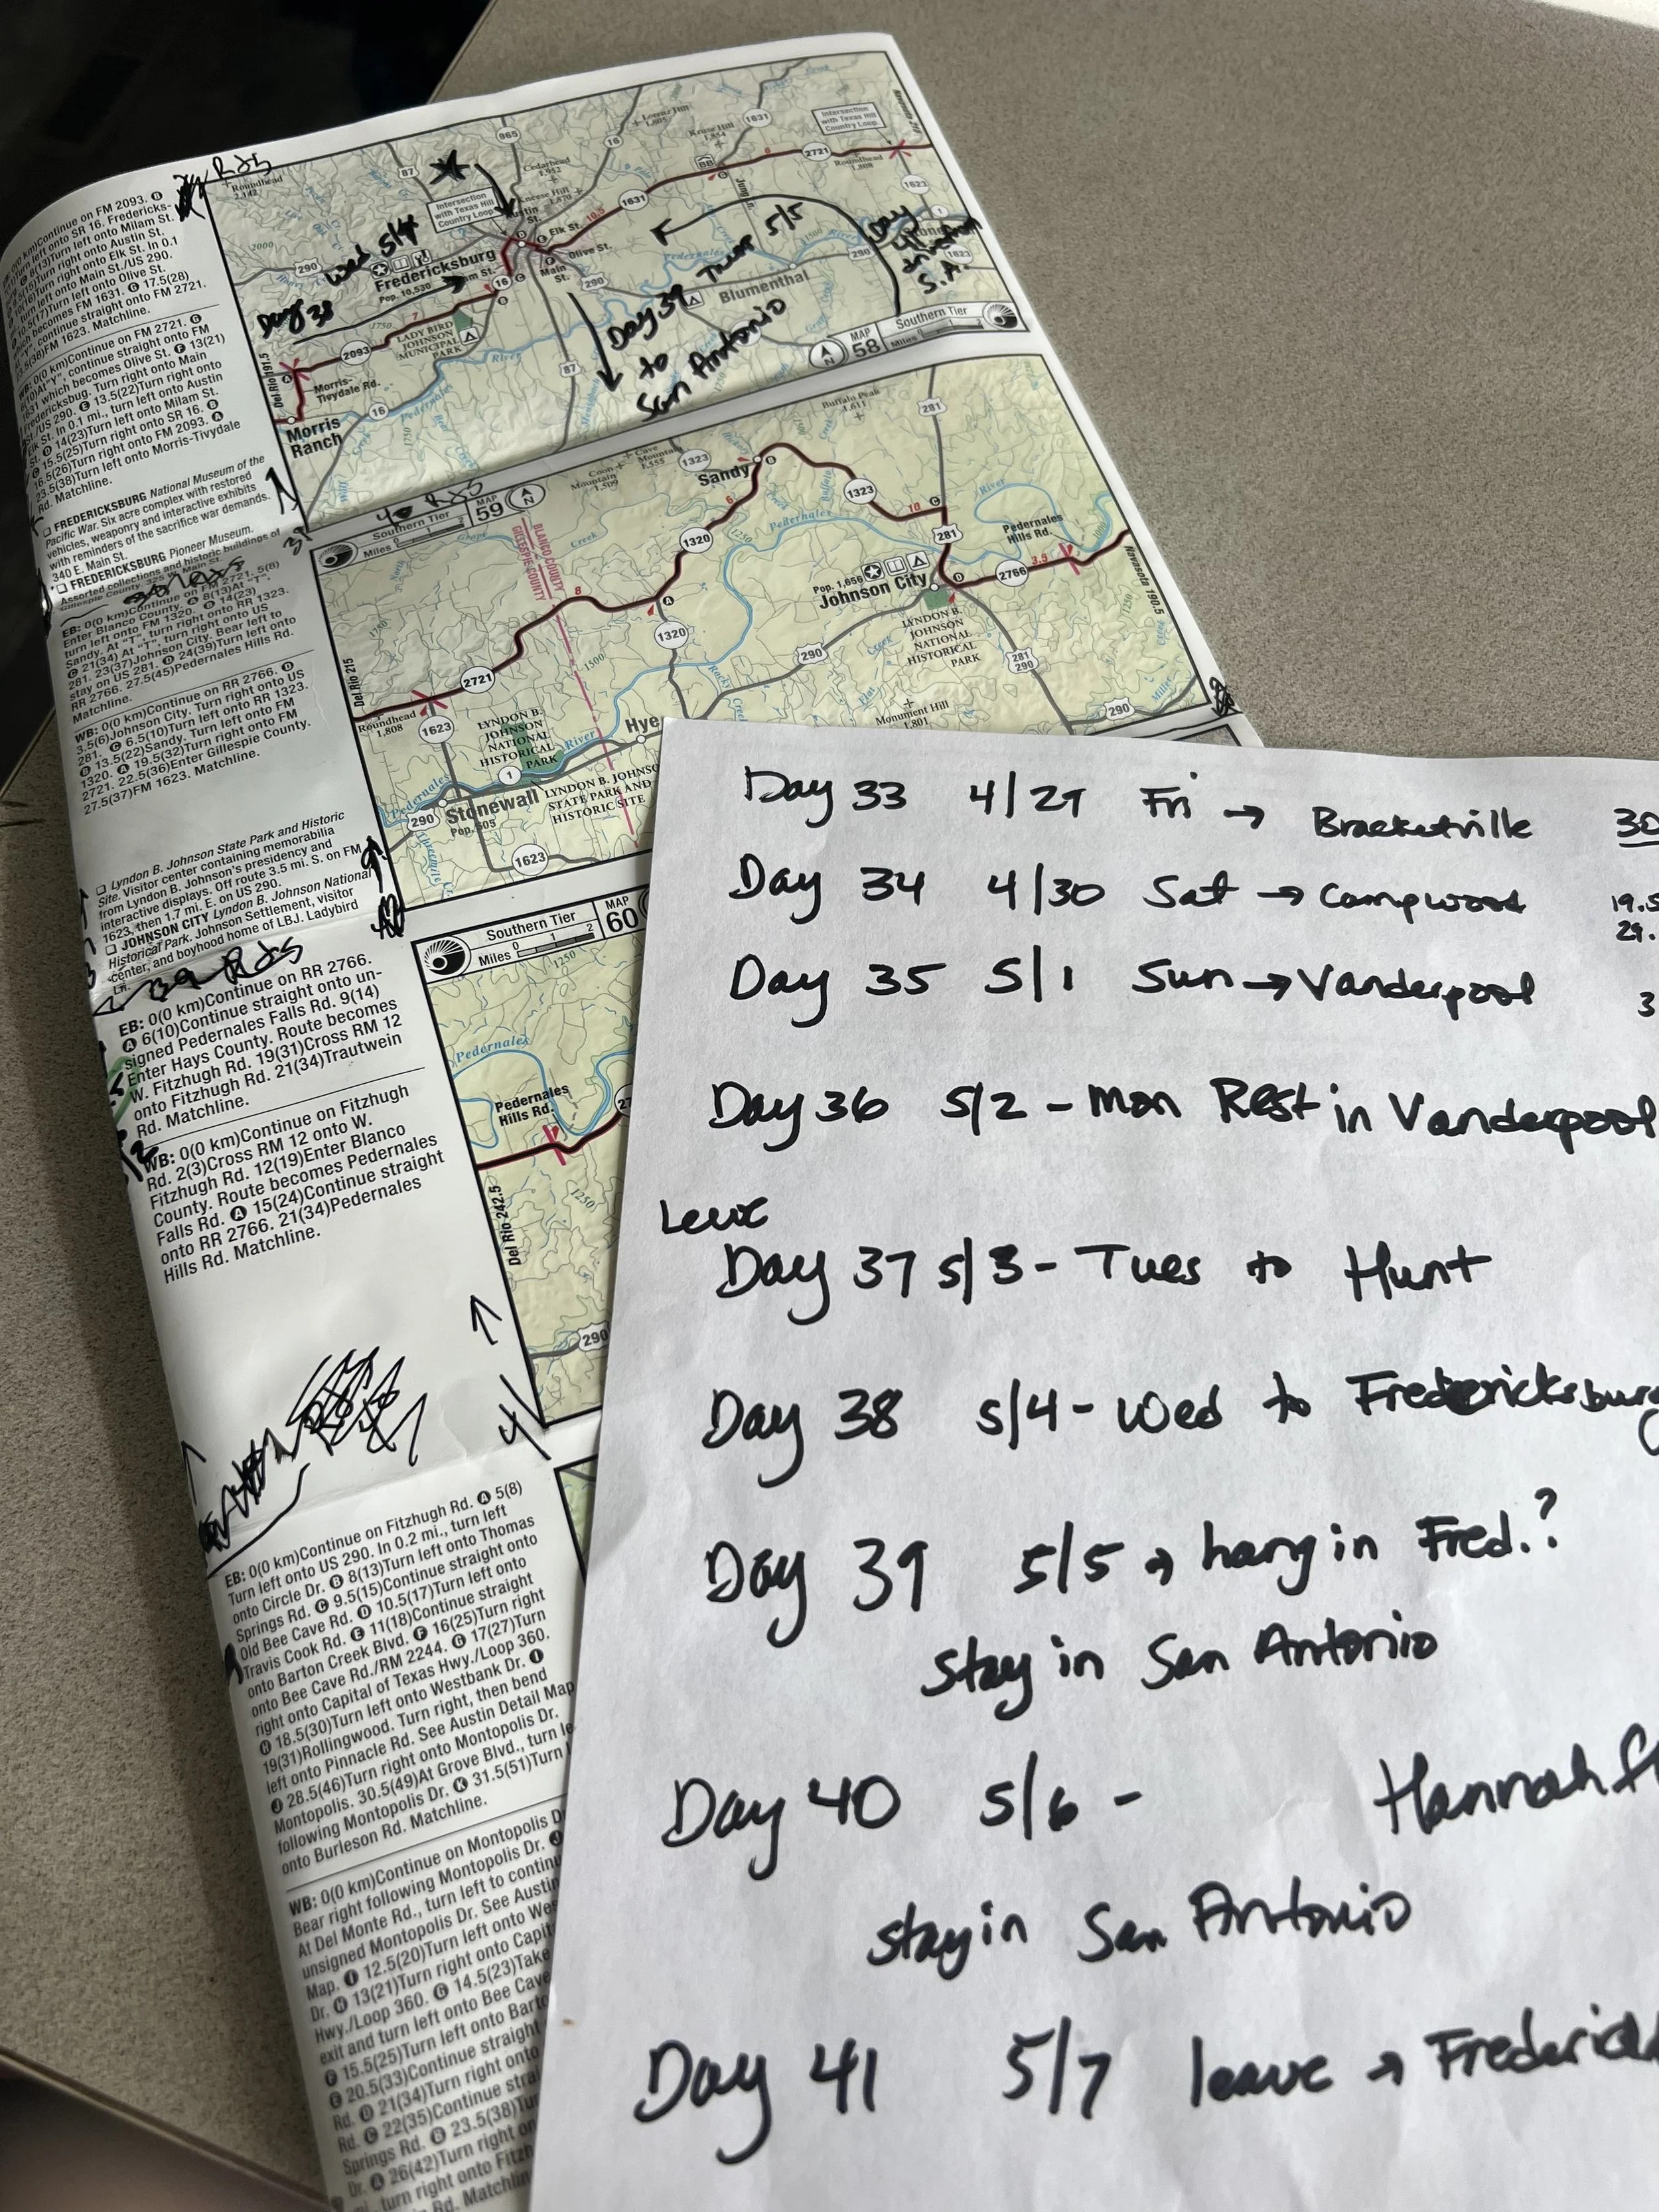 965
87
16
1631
Lorenz Hill
1,805
Kruse Hill
1,854
Intersection
with Texas Hill
Country Loop.
Navasota 218
2721
Roundhead
1,808
Cedarhead
1,952
Intersection
with Texas Hill
Country Loop
Roundhead
2,142
Elk St.
Olive St.
Main
St.
10.5
1631
290
Fredericksburg
Pop. 10,530
Wed 5/4
Day 38
Day 39 Thur 5/5
to
San Antonio
Day
41
from
S.A.
Blumenthal
LADY BIRD
JOHNSON
MUNICIPAL
PARK
2093
Morris-
Tivydale Rd.
Del Rio 191.5
Morris
Ranch
16
Pedernales
River
87
MAP
58
Southern Tier
Miles
Continue on FM 2093. B
Turn left onto Milam St.
Turn right onto Austin St.
Turn right onto Elk St. In 0.1
left onto Main St./US 290.
Turn left onto Olive St.
becomes FM 1631. G 17.5(28)
continue straight onto FM 2721.
FM 1623. Matchline.
WB: 0(0 km)Continue on FM 2721. G
continue straight onto FM
1631 which becomes Olive St. F 13(21)
Fredericksburg. Turn right onto Main
St./US 290. E 13.5(22)Turn right onto
Elk St. In 0.1 mi., turn left onto Austin
St. D 14(23)Turn left onto Milam St.
C 15.5(25)Turn right onto SR 16. B
16.5(26)Turn right onto FM 2093. A
23.5(38)Turn left onto Morris-Tivydale
Rd. Matchline.
FREDERICKSBURG National Museum of the
Pacific War. Six acre complex with restored
vehicles, weaponry and interactive exhibits
with reminders of the sacrifice war demands.
340 E. Main St.
FREDERICKSBURG Pioneer Museum.
Assorted collections and historic buildings of
Gillespie County. 325 W. Main St.
Southern Tier
Miles 0 1 2
MAP
59
GILLESPIE COUNTY
BLANCO COUNTY
Coon
Mountain
1,509
Cave
Mountain
1,555
1323
Sandy
Buffalo Peak
1,611
281
1323
10
6
1320
Pedernales
River
Pedernales
Hills Rd.
281
3.5
2766
Pop. 1,656
Johnson City
LYNDON B.
JOHNSON
NATIONAL
HISTORICAL
PARK
Navasota 190.5
8
1320
2721
Del Rio 215
Roundhead
1,808
1623
LYNDON B.
JOHNSON
NATIONAL
HISTORICAL
PARK
Hye
290
281
290
Monument Hill
1,801
290
1
LYNDON B. JOHNSO
STATE PARK AND
HISTORIC SITE
Pedernales
River
290
Stonewall
Pop. 505
1623
EB: 0(0 km)Continue on FM 2721. 5(8)
Enter Blanco County. A 8(13)At "T",
turn left onto FM 1320. B 14(23)
Sandy. At "T", turn right onto RR 1323.
C 21(34) At "T", turn right onto US
281. 23(37)Johnson City. Bear left to
stay on US 281. D 24(39)Turn left onto
RR 2766. 27.5(45)Pedernales Hills Rd.
Matchline.
WB: 0(0 km)Continue on RR 2766. D
3.5(6)Johnson City. Turn right onto US
281. C 6.5(10)Turn left onto RR 1323.
B 13.5(22)Sandy. Turn left onto FM
1320. A 19.5(32)Turn right onto FM
2721. 22.5(36)Enter Gillespie County.
27.5(37)FM 1623. Matchline.
Lyndon B. Johnson State Park and Historic
Site. Visitor center containing memorabilia
from Lyndon B. Johnson's presidency and
interactive displays. Off route 3.5 mi. S. on FM
1623, then 1.7 mi. E. on US 290.
JOHNSON CITY Lyndon B. Johnson National
Historical Park. Johnson Settlement, visitor
center, and boyhood home of LBJ. Ladybird
Ln.
Southern Tier
Miles 0 1 2
MAP
60
1250
Pedernales
Pedernales
Hills Rd.
Del Rio 242.5
1250
290
EB: 0(0 km)Continue on RR 2766.
A 6(10)Continue straight onto un-
signed Pedernales Falls Rd. 9(14)
Enter Hays County. Route becomes
W. Fitzhugh Rd. 19(31)Cross RM 12
onto Fitzhugh Rd. 21(34)Trautwein
Rd. Matchline.
WB: 0(0 km)Continue on Fitzhugh
Rd. 2(3)Cross RM 12 onto W.
Fitzhugh Rd. 12(19)Enter Blanco
County. Route becomes Pedernales
Falls Rd. A 15(24)Continue straight
onto RR 2766. 21(34)Pedernales
Hills Rd. Matchline.
EB: 0(0 km)Continue on Fitzhugh Rd. A 5(8)
Turn left onto US 290. In 0.2 mi., turn left
onto Circle Dr. B 8(13)Turn left onto Thomas
Springs Rd. C 9.5(15)Continue straight onto
Old Bee Cave Rd. D 10.5(17)Turn left onto
Travis Cook Rd. E 11(18)Continue straight
onto Barton Creek Blvd. F 16(25)Turn right
onto Bee Cave Rd./RM 2244. G 17(27)Turn
right onto Capital of Texas Hwy./Loop 360.
H 18.5(30)Turn left onto Westbank Dr. I
19(31)Rollingwood. Turn right, then bend
left onto Pinnacle Rd. See Austin Detail Map
J 28.5(46)Turn right onto Montopolis Dr.
Montopolis. 30.5(49)At Grove Blvd., turn le
following Montopolis Dr. K 31.5(51)Turn
onto Burleson Rd. Matchline.
WB: 0(0 km)Continue on Montopolis D
Bear right following Montopolis Dr. J
At Del Monte Rd., turn left to continu
unsigned Montopolis Dr. See Austin
Map. I 12.5(20)Turn left onto Wes
Dr. H 13(21)Turn right onto Capit
Hwy./Loop 360. G 14.5(23)Take
exit and turn left onto Bee Cave
F 15.5(25)Turn left onto Barto
E 20.5(33)Continue straight
Rd. D 21(34)Turn right onto
Rd. C 22(35)Continue strai
Springs Rd. B 23.5(38)Tur
Dr. A 26(42)Turn right on
mi., turn right onto Fitzh
Rd. Matchlin
Day 33 4/29 Fri → Bracketville 30
Day 34 4/30 Sat → Campwood 19.5
29.
Day 35 5/1 Sun → Vanderpool 3
Day 36 5/2 - Mon Rest in Vanderpool
Leave
Day 37 5/3 - Tues to Hunt
Day 38 5/4 - Wed to Fredericksburg
Day 39 5/5 → hang in Fred.?
stay in San Antonio
Day 40 5/6 - Hannah
stay in San Antonio
Day 41 5/7 leave → Frederick